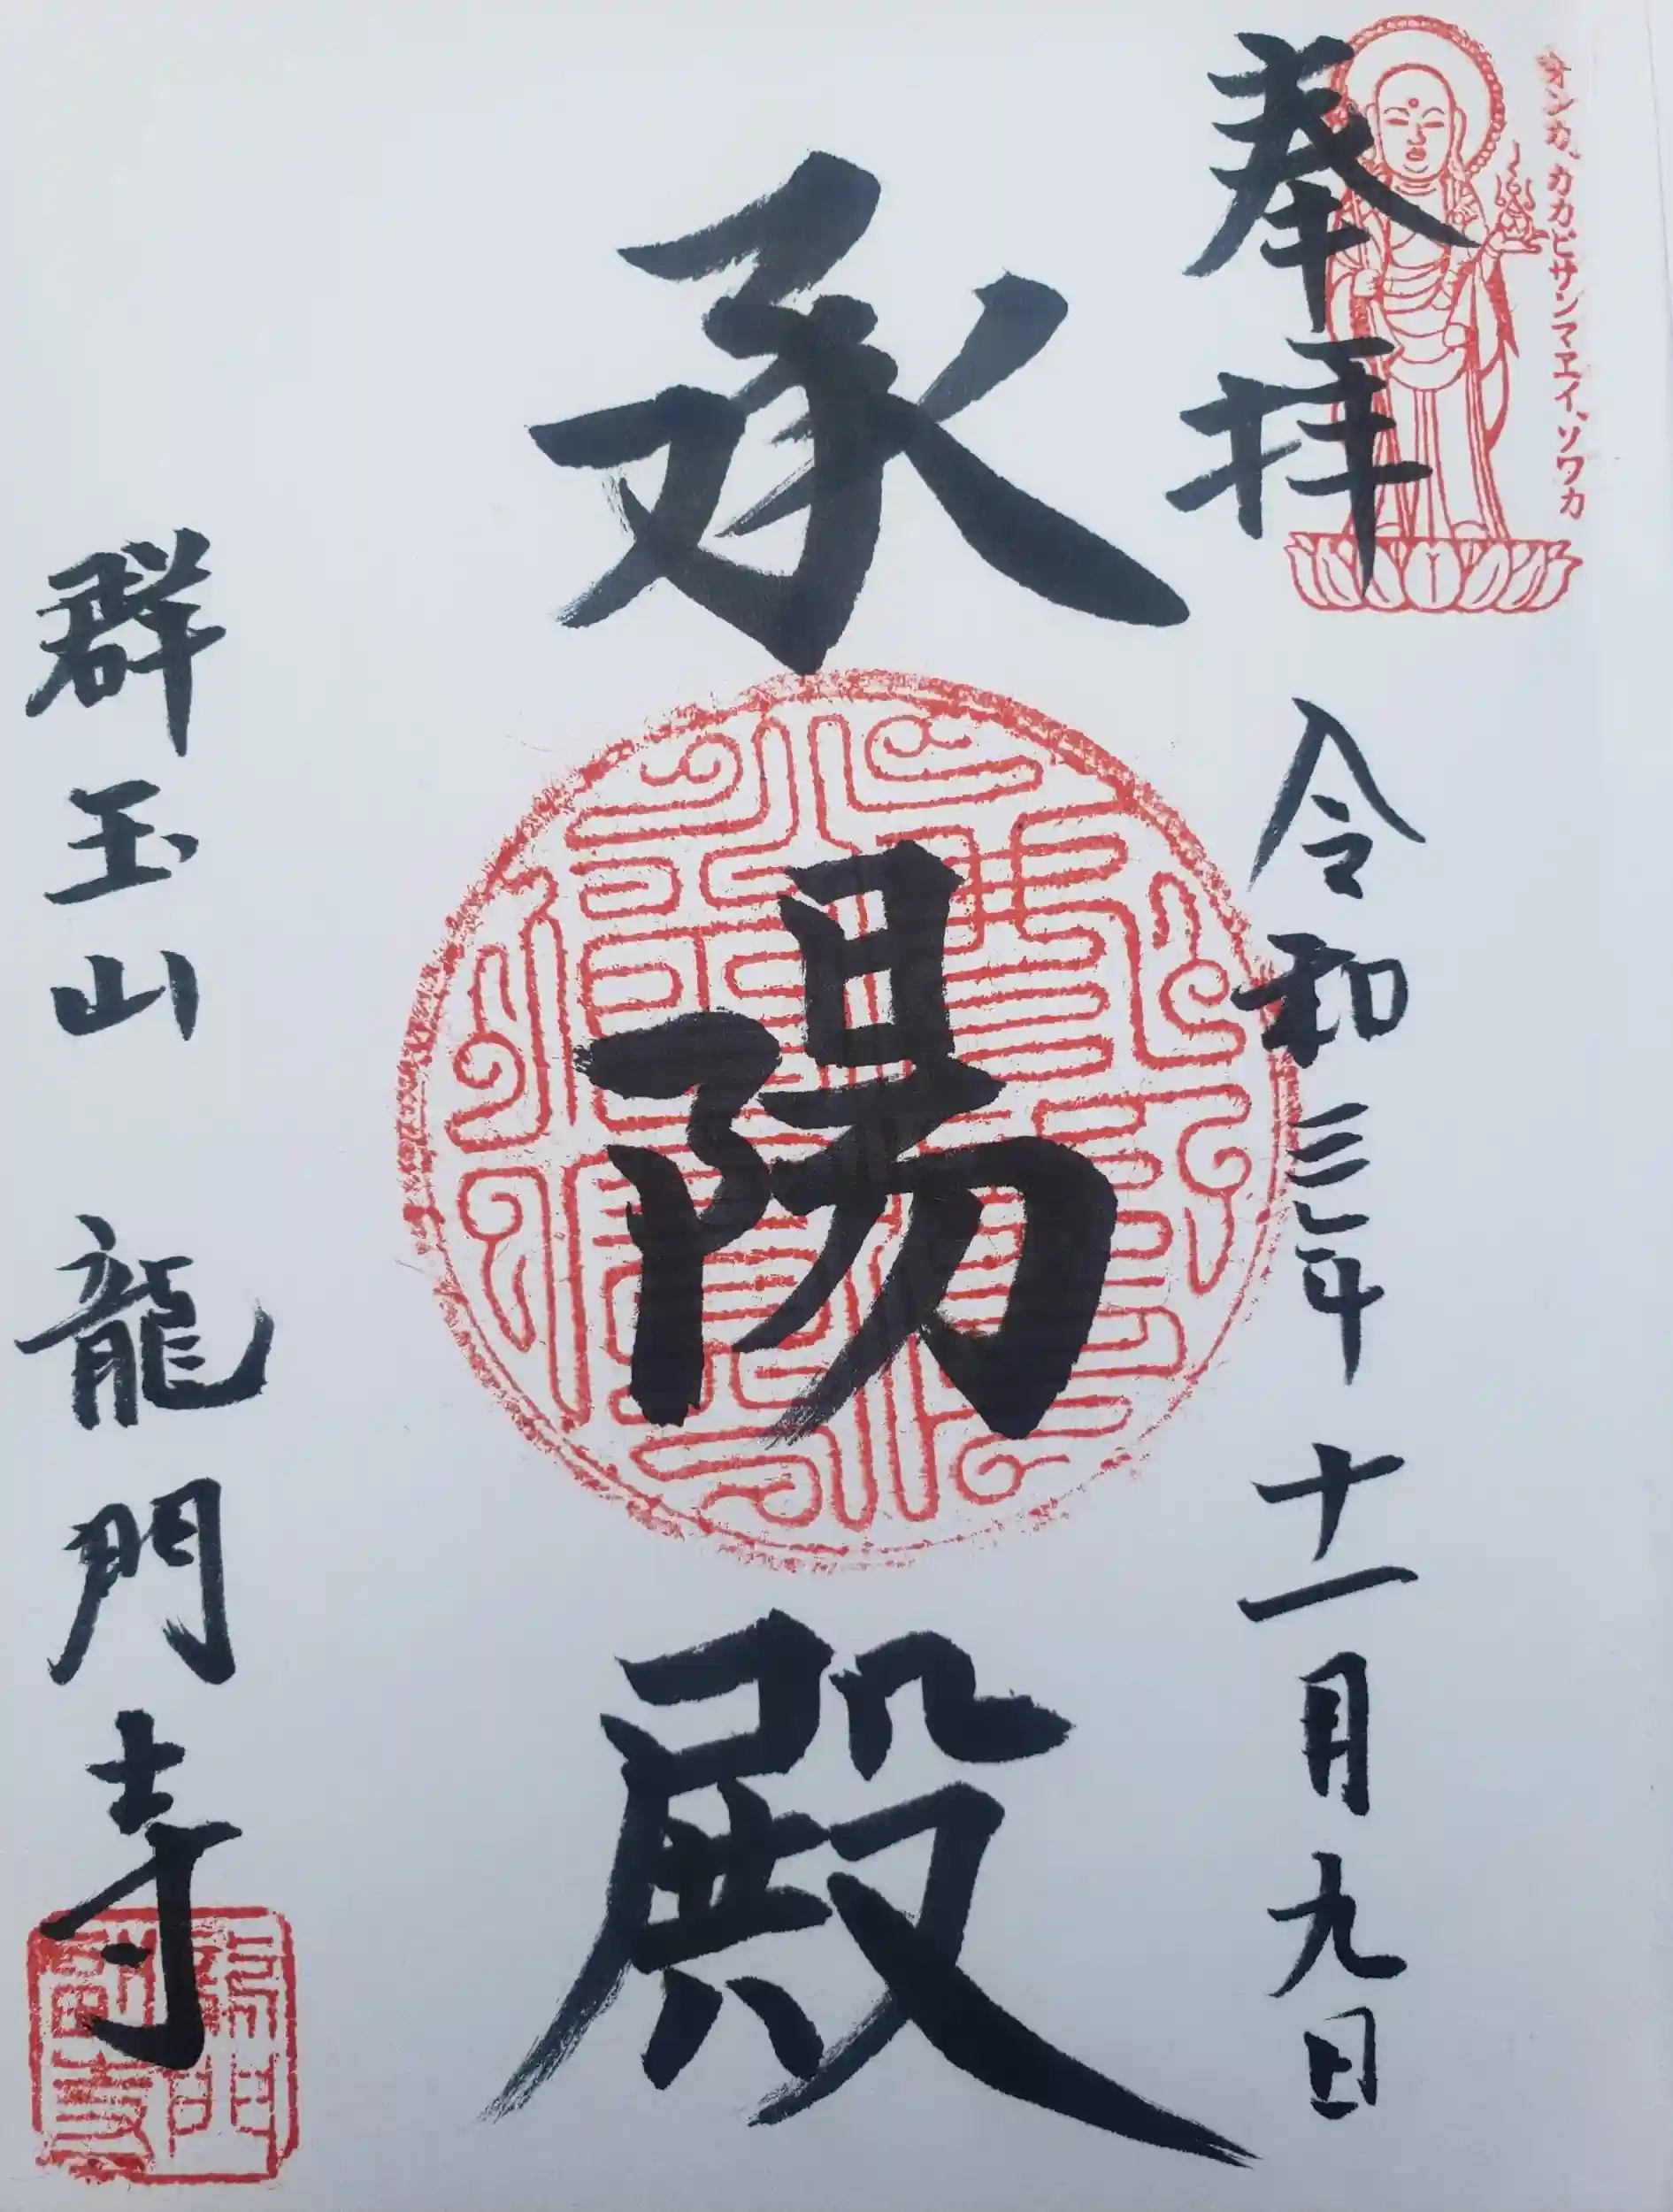 オンカカカビサンマエイ、ソワカ
奉拝
令和三年十一月九日
承陽殿
群玉山 龍門寺